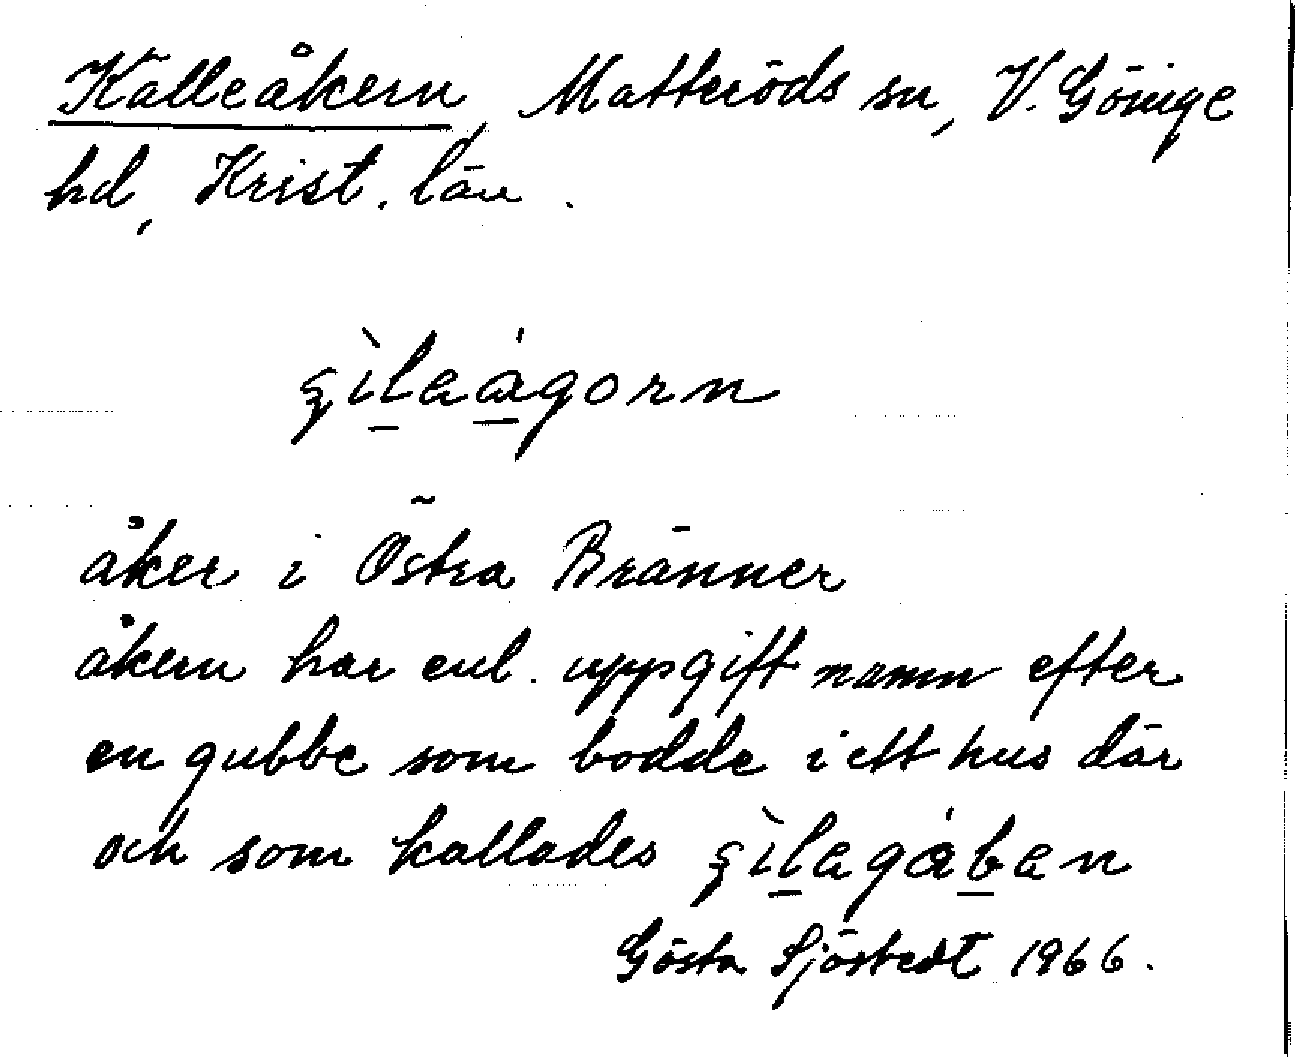 Källeåkern, Matteröds sn, V. Göinge
hd, Krist. län.
åker i Östra Bränner
åkern har enl. uppgift namn efter
en gubbe som bodde i ett hus där
och som kallades
Gösta Sjöstedt 1966.